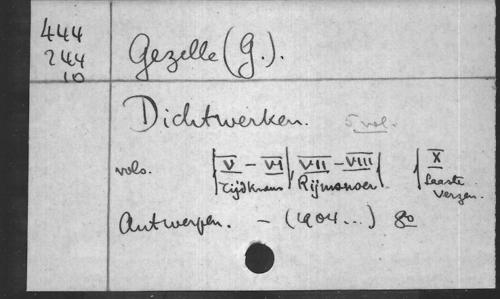 444
244
10
Gezelle (G.).
Dichtwerken. 5 vol.
vols. V – VI VII – VIII X
Tijdkrans Rijmsnoer Laaste
Verzen.
Antwerpen. – (1904...) 8o